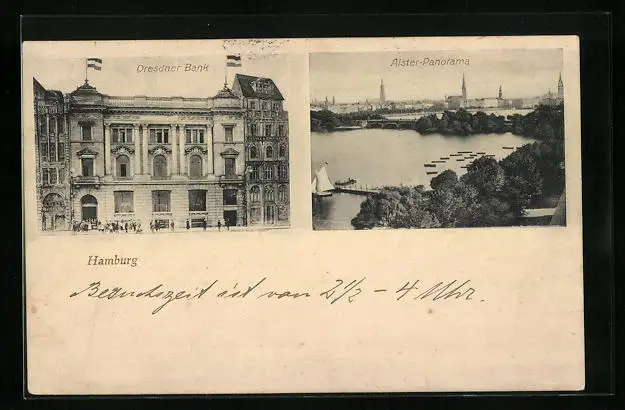 Dresdner Bank
Alster-Panorama
Hamburg
Besuchszeit ist von 2 1/2 - 4 Uhr.